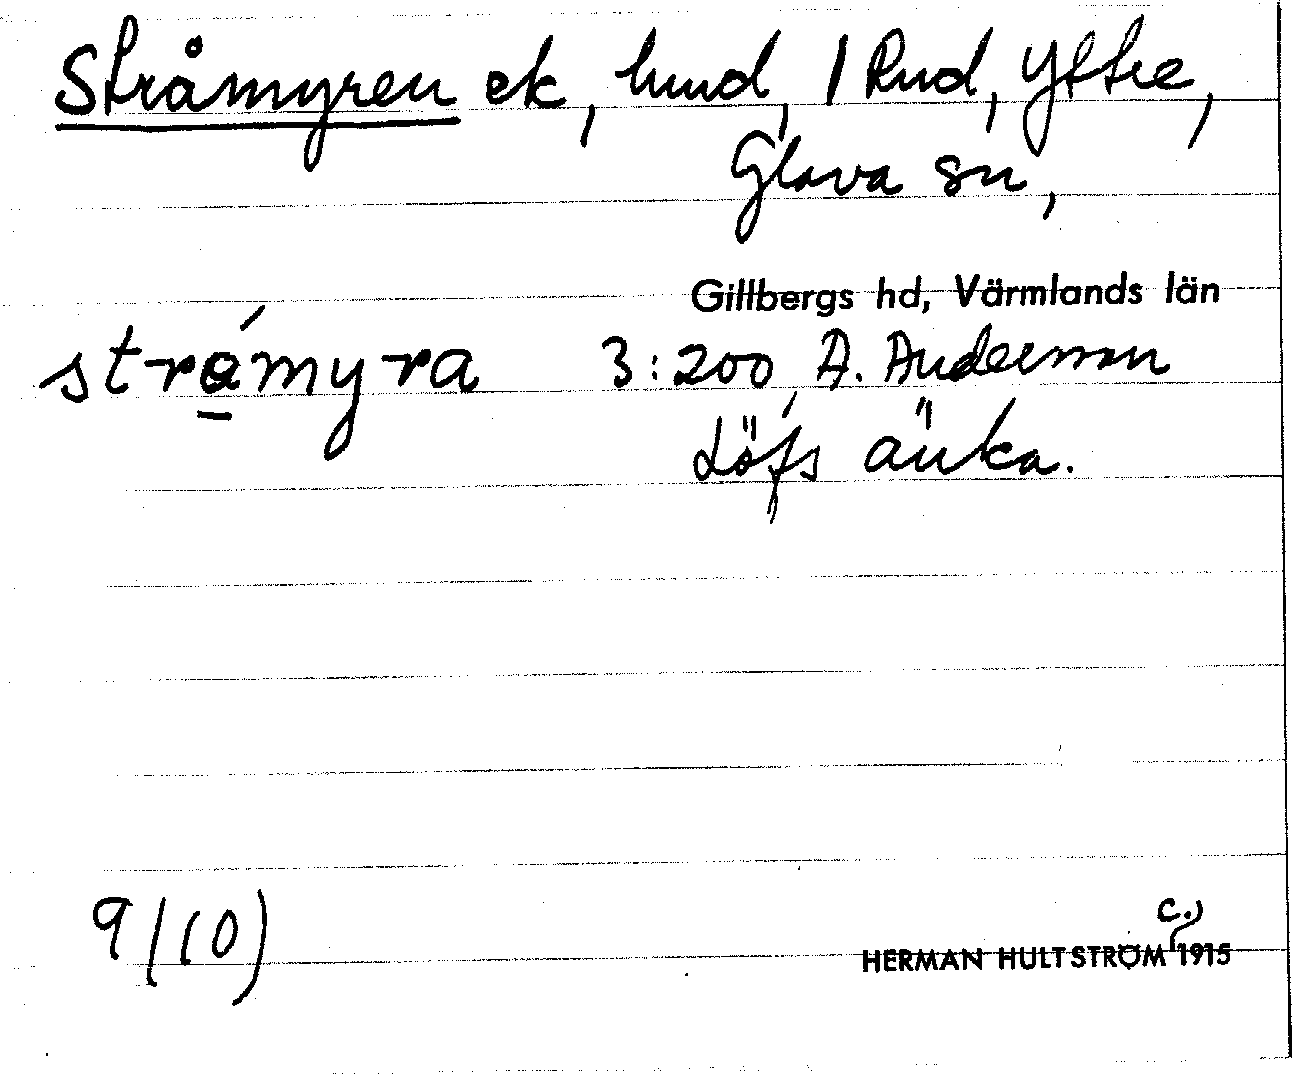 Stråmyren ek, hmd, / Rud, Yttre,
Glava sn,
Gillbergs hd, Värmlands län
stråmyra 3:200 A. Andersson
Löfs änka.
9/(10)
c.,
HERMAN HULTSTRÖM 1915